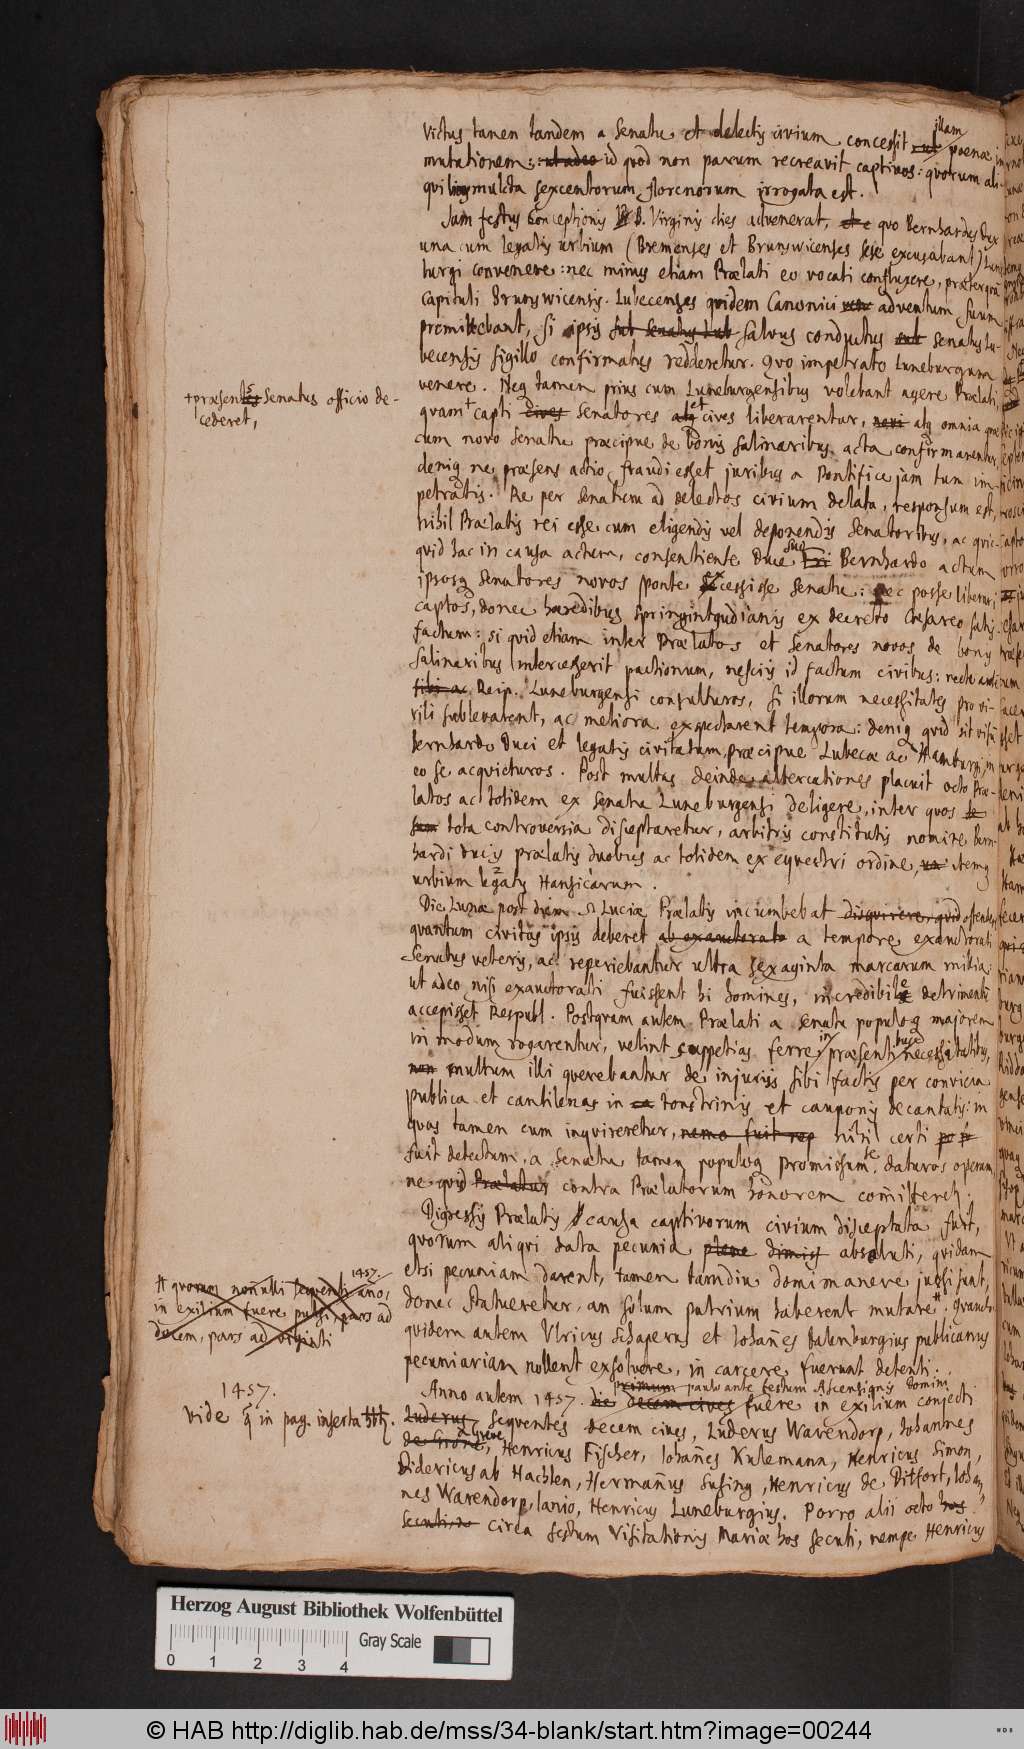 victus tamen tandem a Senatu et delectis civium concessit illam poenae
mutationem: ut adeo id quod non parum recreavit captivos: quorum ali-
quibus mulcta sexcentorum florenorum irrogata est.
Jam festus Conceptionis B. Virginis dies advenerat, quo Bernhardus Dux
una cum legatis urbium (Bremenses et Brunswicenses sese excusabant) Lune
burgi convenere: nec minus etiam Praelati eo vocati confluxere, praeterquam
Capituli Brunswicensis. Lubecenses quidem Canonici adventum suum
promittebant, si ipsis sub senatus Lub salvus conductus sub senatus Lu-
becensis sigillo confirmatus redderetur. Quo impetrato Luneburgum
venere. Neq tamen prius cum Luneburgensibus volebant agere Praelati
+praesentes Senatus officio de-
cederet,
quam+ capti cives Senatores atq et cives liberarentur, novi atq omnia quae
cum novo Senatu praecipue de bonis salinaribus acta confirmarentur
deniq ne praesens actio fraudi esset juribus a Pontifice jam tum im-
petratis. Re per senatum ad delectos civium delata, responsum est,
nihil Praelatis rei esse cum eligendis vel deponendis Senatoribus, ac quic-
quid hac in causa actum, consentiente Duce suo Bernhardo actum
ipsosq Senatores novos sponte excessisse senatu: nec posse liberari
captos, donec haeredibus Springintgudianis ex decreto Caesareo satis-
factum: si quid etiam inter Praelatos et Senatores novos de bonis
Salinaribus intercesserit pactionum, nesciis id factum civibus: recte autem
sibi ac Reip. Luneburgensi consulturos, si illorum necessitates pro vi-
rili sublevarent, ac meliora exspectarent tempora: deniq quid sit visum
Bernhardo Duci et legatis civitatum, praecipue Lubecae ac Hamburgi, in
eo se acquicturos. Post multas deinde altercationes placuit octo Prae-
latos ac totidem ex senatu Luneburgensi deligere, inter quos
tota controversia disceptaretur, arbitris constitutis nomine Bern-
hardi Ducis praelatis duobus ac totidem ex equestri ordine, itemq
urbium legatis Hansicarum.
Die Lunae post diem S. Luciae Praelatis incumbebat disquirere, quid ostendere
quantum civitas ipsis deberet ab exauctorato a tempore exauctorati
Senatus veteris, ac reperiebantur ultra sexaginta marcarum milia:
ut adeo nisi exauctorati fuissent hi homines, incredibile detrimenti
accepisset Respubl. Postquam autem Praelati a senatu populoq majorem
in modum rogarentur, velint suppetias ferre in praesenti hacce necessitatibus,
non multum illi querebantur de injuriis sibi factis per convicia
publica et cantilenas in tonstrinis et cauponis decantatis: in
quas tamen cum inquireretur, nemo fuit rep nihil certi
fuit detectum, a senatu tamen populoq promissum se daturos operam,
ne quid Praelatus contra Praelatorum honorem committeret.
Digressis Praelatis causa captivorum civium disceptata fuit,
quorum aliqui data pecunia plene dimissi absoluti, quidam
etsi pecuniam darent, tamen tamdiu domi manere jussi sunt,
donec statueretur, an solum patrium haberent mutare #. quando-
# quorum nonnulli sequenti ano, 1457.
in exilium fuere pulsi, pars ad
decem, pars ad viginti
quidem autem Ulricus Schaperus et Johanes Dalenburgius publicanus
pecuniariam nollent exsolvere, in carcere fuerunt detenti.
1457.
Anno autem 1457. die primum decem cives paulo ante festum Ascensionis Domini fuere in exilium conjecti
vide q in pag. inserta
Luderus sequentes decem cives, Luderus Warendorp, Johannes
de Grone Greve, Henricus Fischer, Johanes Kulemann, Henricus Simon,
Didericus ab Hachten, Hermanus Susing, Henricus de Ditfort, Johan-
nes Warendorp, lanio, Henricus Luneburgius. Porro alii octo hos
secuti, circa festum Visitationis Mariae hos secuti, nempe Henricus
Herzog August Bibliothek Wolfenbüttel
Gray Scale
0 1 2 3 4
© HAB http://diglib.hab.de/mss/34-blank/start.htm?image=00244